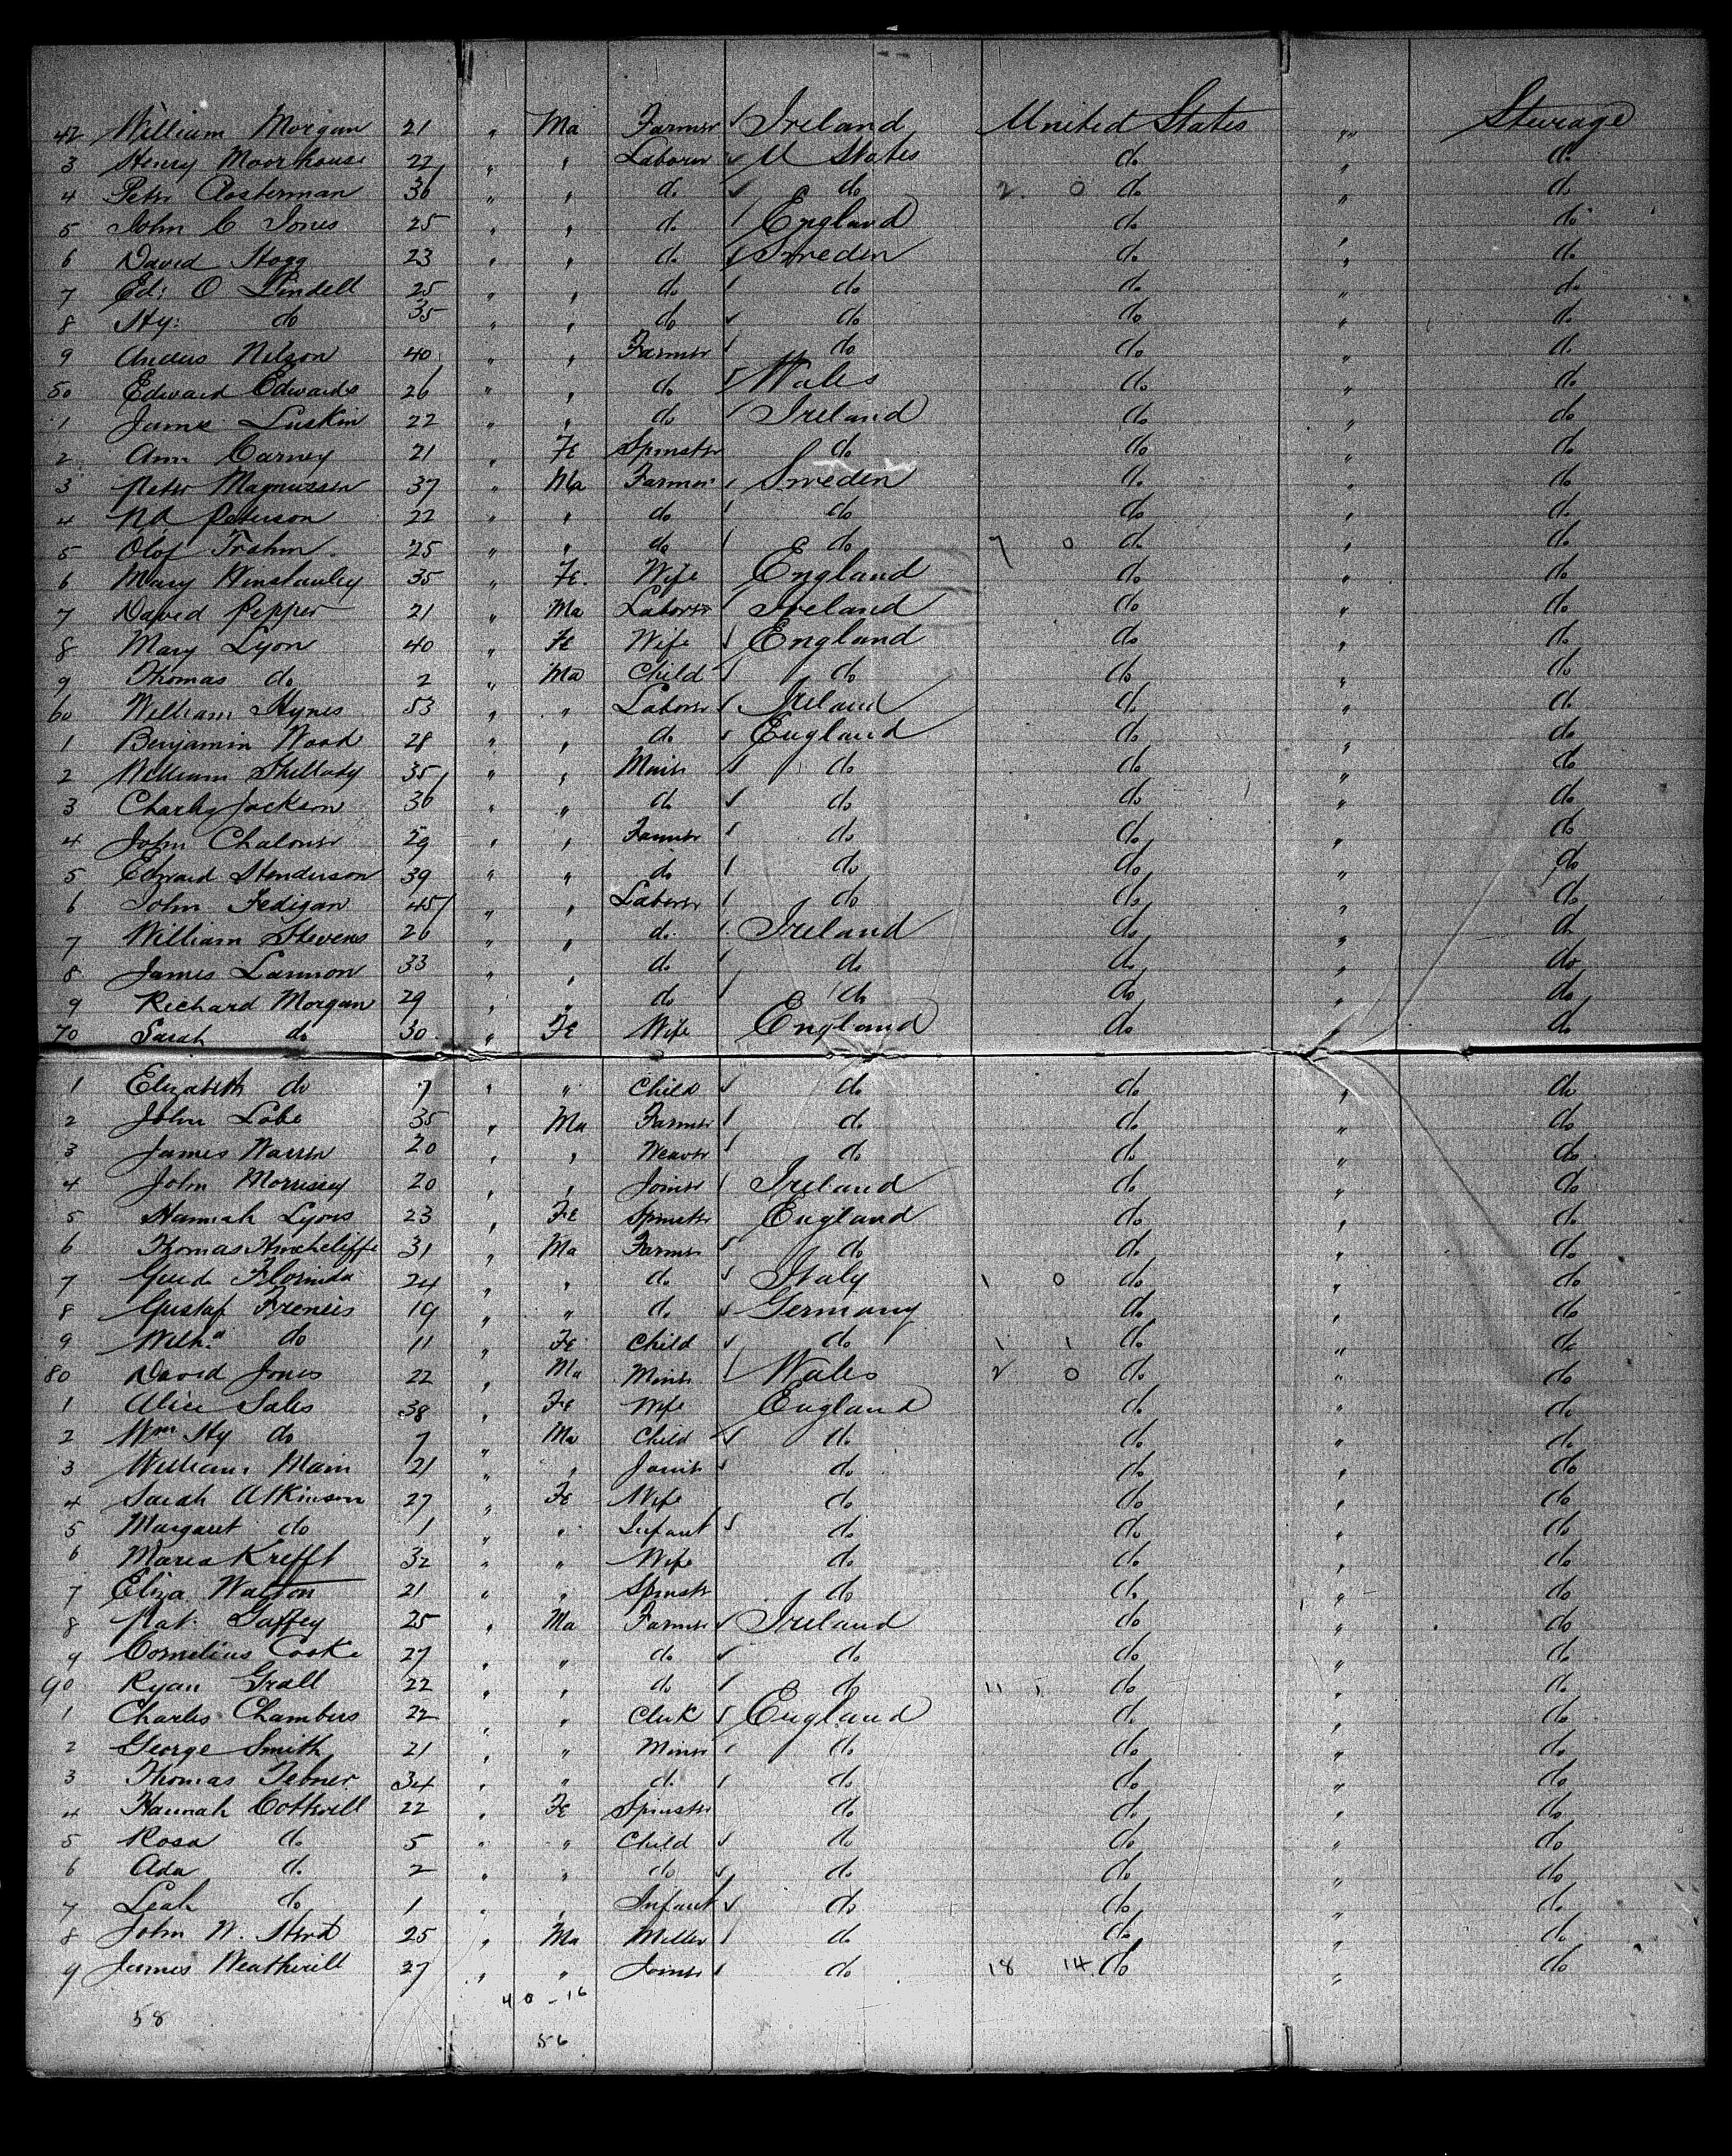 42 William Morgan 21 " Ma Farmer ✓ Ireland United States " Steerage
3 Henry Moorhouse 22 " " Laborer ✓ U States do " do
4 Peter Closterman 36 " " do ✓ do 2 0 do " do
5 John C Jones 25 " " do England do " do
6 David Hogg 23 " " do Sweden do " do
7 Ed: O Lindell 25 " " do do do " do
8 Hy: do 35 " " do ✓ do do " do
9 Anders Nilson 40 " " Farmer do do " do
50 Edward Edwards 26 " " do Wales do " do
1 James Luskin 22 " " do Ireland do " do
2 Ann Carney 21 " Fe Spinster do do " do
3 Peter Magnussen 37 " Ma Farmer Sweden do " do
4 Peterson 22 " " do do do " do
5 Olof 25 " " do do 7 0 do " do
6 Mary Winstanley 35 " Fe. Wife England do " do
7 David Pepper 21 " Ma Laborer Ireland do " do
8 Mary Lyon 40 " Fe Wife England do " do
9 Thomas do 2 " Ma Child do do " do
60 William Hynes 53 " " Laborer Ireland do " do
1 Benjamin Wood 28 " " do England do " do
2 William Shillady 35 " " do do " do
3 Charles Jackson 36 " " do ✓ do do " do
4 John Chaloner 29 " " Farmer do do " do
5 Edward Henderson 39 " " do do do " do
6 John Fedigan 45 " " Laborer do do " do
7 William Stevens 26 " " do Ireland do " do
8 James Lannon 33 " " do do do " do
9 Richard Morgan 29 " " do do do " do
70 Sarah do 30 " Fe Wife England do " do
1 Elizabeth do 7 " " Child ✓ do do " do
2 John Lobe 35 " Ma Farmer do do " do
3 James Warren 20 " " Weaver do do " do
4 John Morrissey 20 " " Joiner Ireland do " do
5 Hannah Lyons 23 " Fe Spinster England do " do
6 Thomas Hinchcliffe 31 " Ma Farmer do do " do
7 Florinda 24 " " do ✓ Italy 1 0 do " do
8 Gustaf 19 " " do ✓ Germany do " do
9 do 11 " Fe Child ✓ do 1 1 do " do
80 David Jones 22 " Ma Miner Wales 2 0 do " do
1 Alice Sales 38 " Fe Wife England do " do
2 Wm Hy do 7 " Ma Child ✓ do do " do
3 William Main 21 " " do do " do
4 Sarah Atkinson 27 " Fe Wife do do " do
5 Margaret do 1 " " Infant do do " do
6 Maria Krefft 32 " " Wife do do " do
7 Eliza Walton 21 " " Spinster do do " do
8 Pat: Gaffey 25 " Ma Farmer ✓ Ireland do " do
9 Cornelius Cooke 27 " " do ✓ do do " do
90 Ryan Grall 22 " " do do 11 1 do " do
1 Charles Chambers 22 " " Clerk England do " do
2 George Smith 21 " " Miner do do " do
3 Thomas Tebner 34 " " do do do " do
4 Hannah Cotterill 22 " Fe Spinster do do " do
5 Rosa do 5 " " Child ✓ do do " do
6 Ada do 2 " " do ✓ do do " do
7 Leah do 1 " " Infant ✓ do do " do
8 John W. 25 " Ma Miller do do " do
9 James Weatherill 27 " " Joiner do 18 14 do " do
40 - 16
58
56